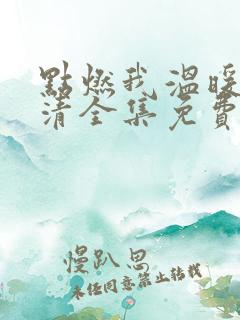 點燃我溫暖
清全集免費
慢趴思
未经同意禁止转载